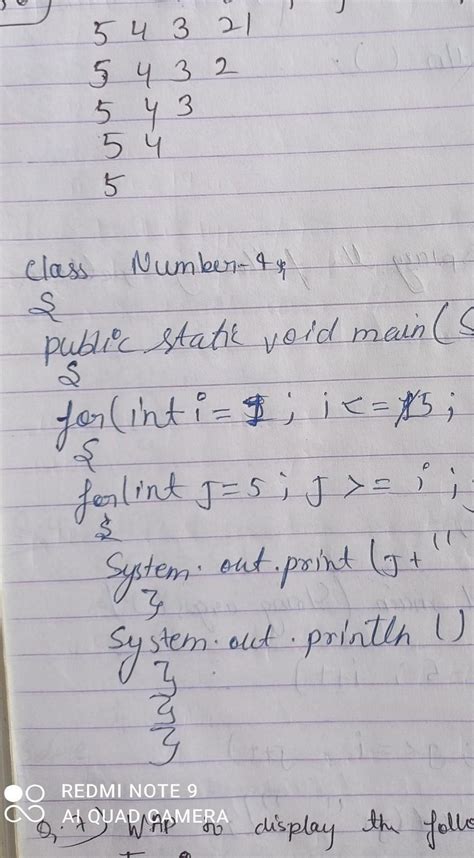 5 4 3 2 1
5 4 3 2
5 4 3
5 4
5
class Number-4
{
public static void main(S
{
for(int i = 1; i <= 5;
{
for(int J=5; J >= i;
{
System.out.print(J+"
}
System.out.println()
}
}
}
REDMI NOTE 9
AI QUAD CAMERA
WAP to display the follo